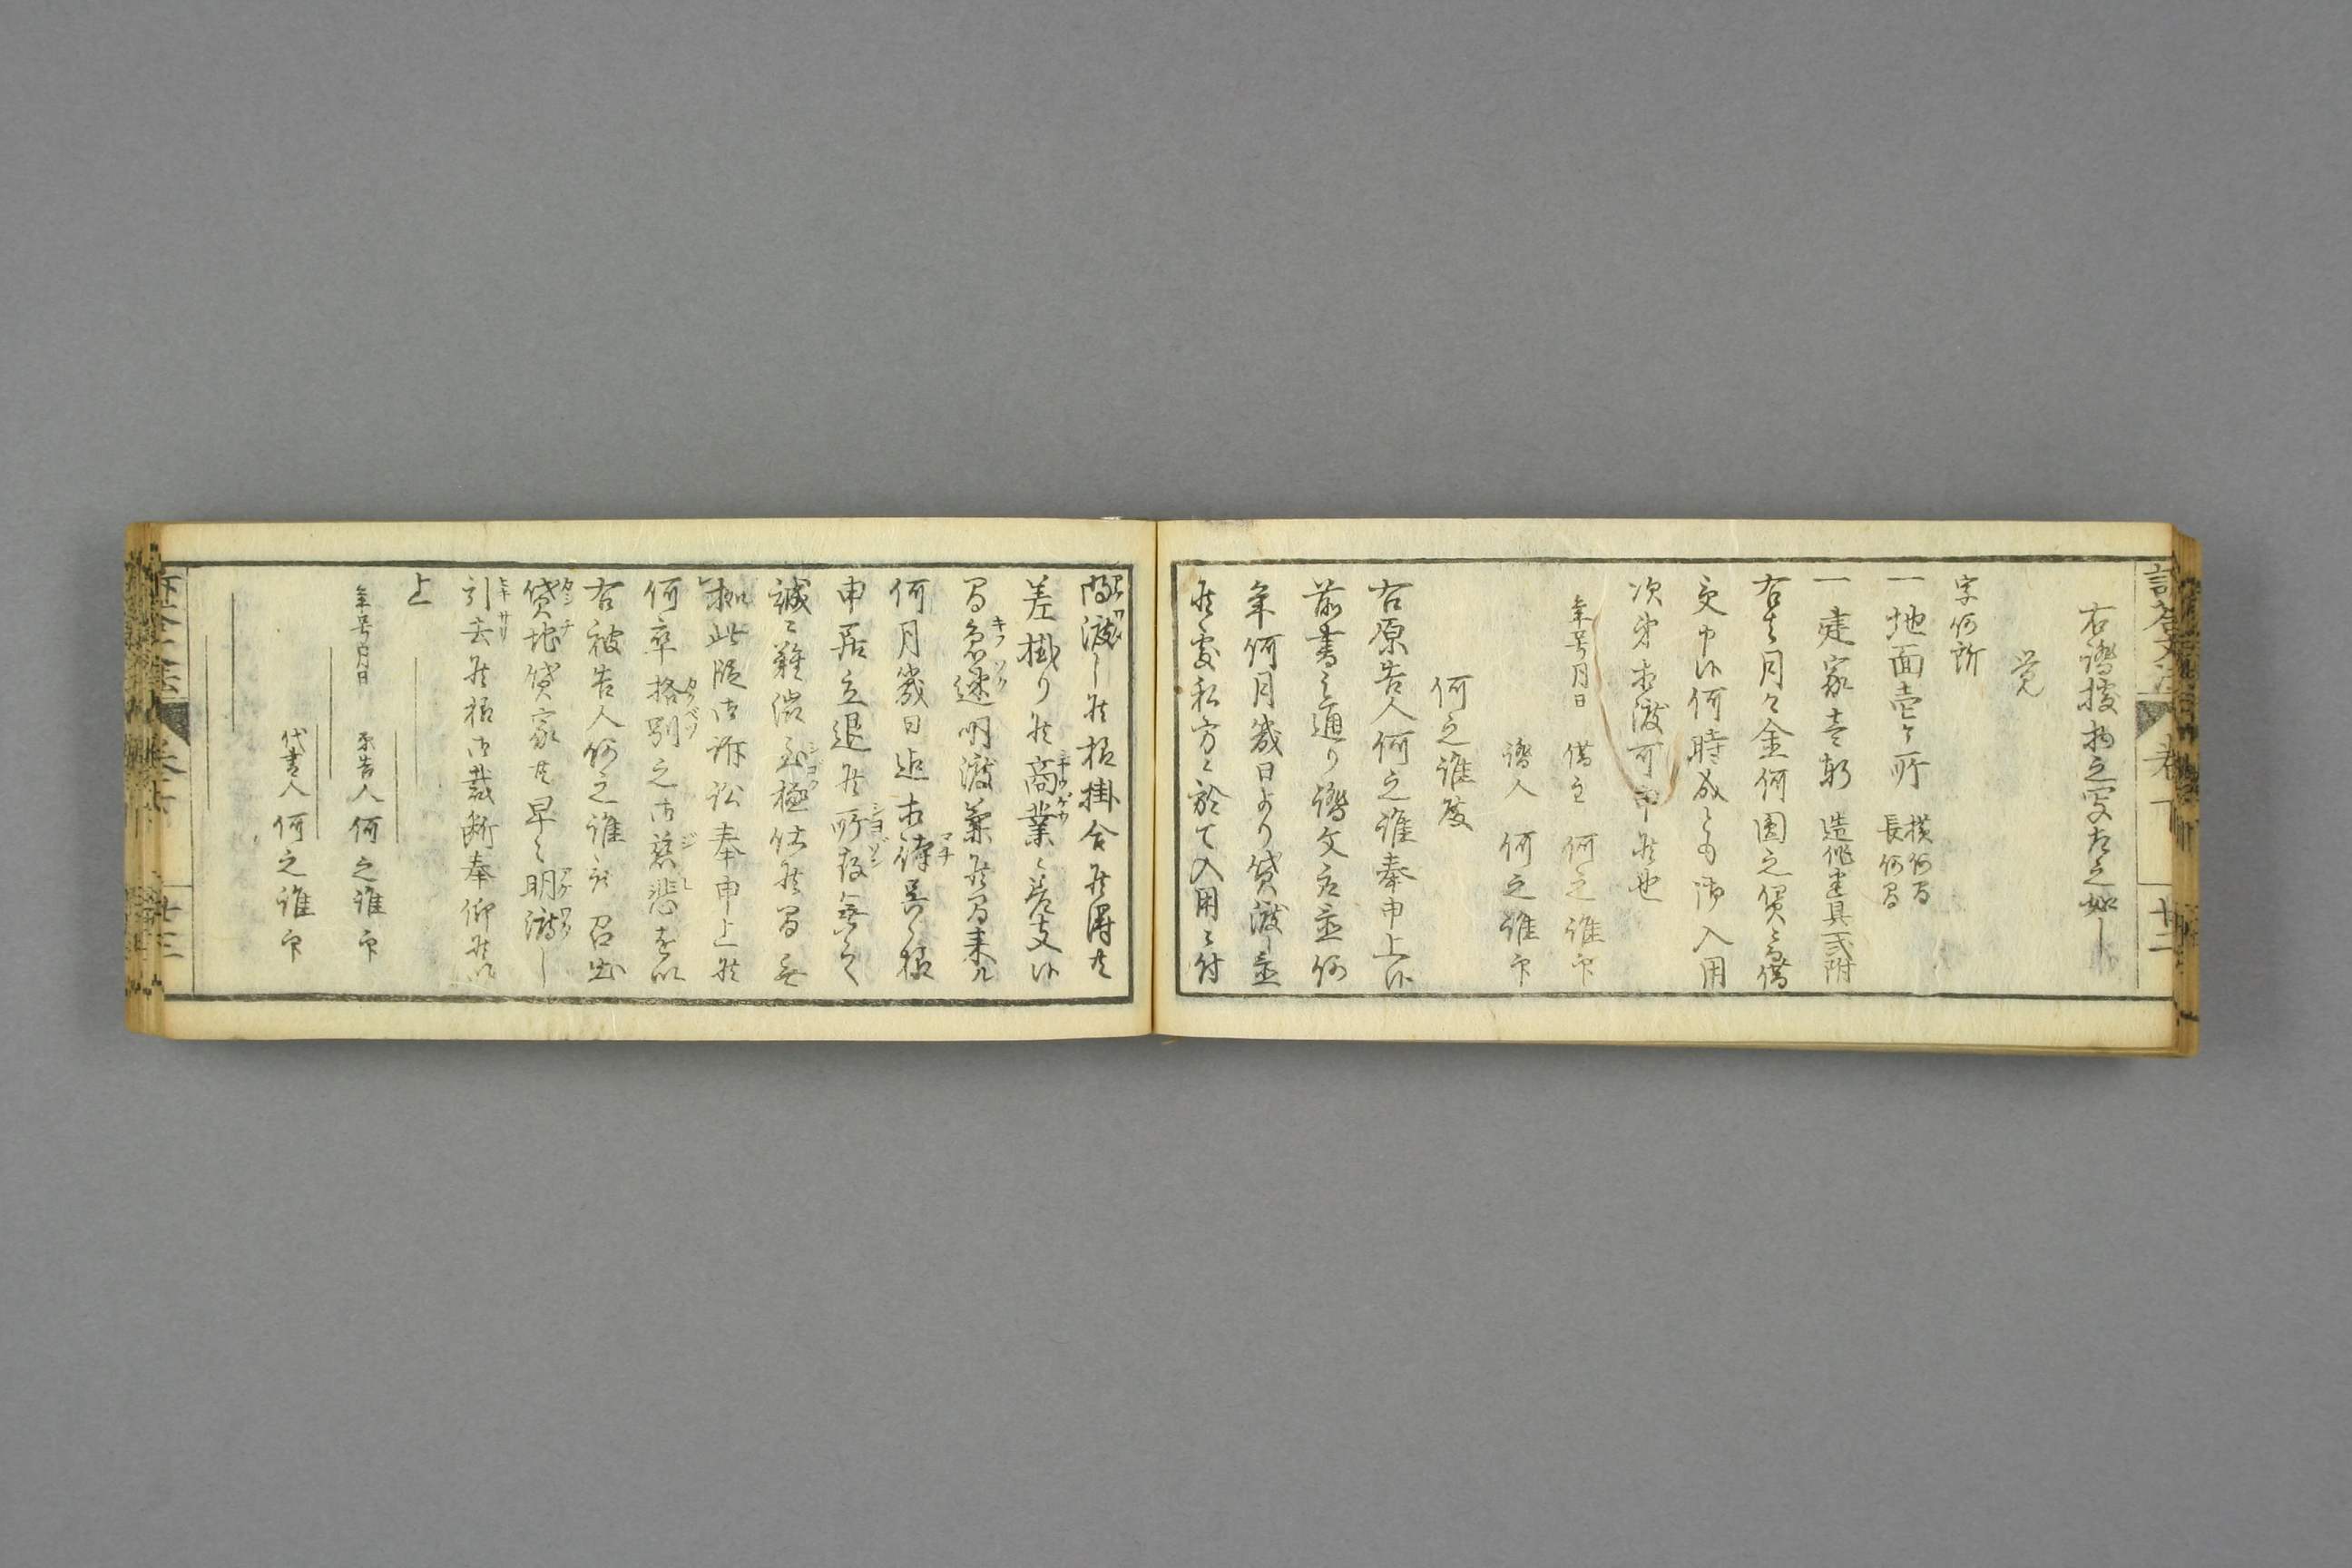 右證據物之写左之如し
覚
字何所
一地面壱ヶ所 横何間 長何間
一建家壱軒 造作建具弐附
右者月々金何圓之貸ニ而借
受申候何時成とも御入用
次第相渡可申候也
年号月日 借主 何之誰 印
證人 何之誰 印
何之誰殿
右原告人何之誰奉申上候
前書之通り證文取置何
年何月幾日より貸渡し置
候處私方ニ於て入用ニ付
明渡し候様掛合候得共
差掛り候商業ニ差支候
間急速明渡兼候間来ル
何月幾日迄相待呉候様
申居立退候所存無く
誠ニ難渋至極仕候間無
拠此段御訴訟奉申上候
何卒格別之御慈悲を以
右被告人何之誰被召出
貸地貸家共早々明渡し
引去候様御裁断奉仰候以
上
年号月日 原告人 何之誰 印
代書人 何之誰 印